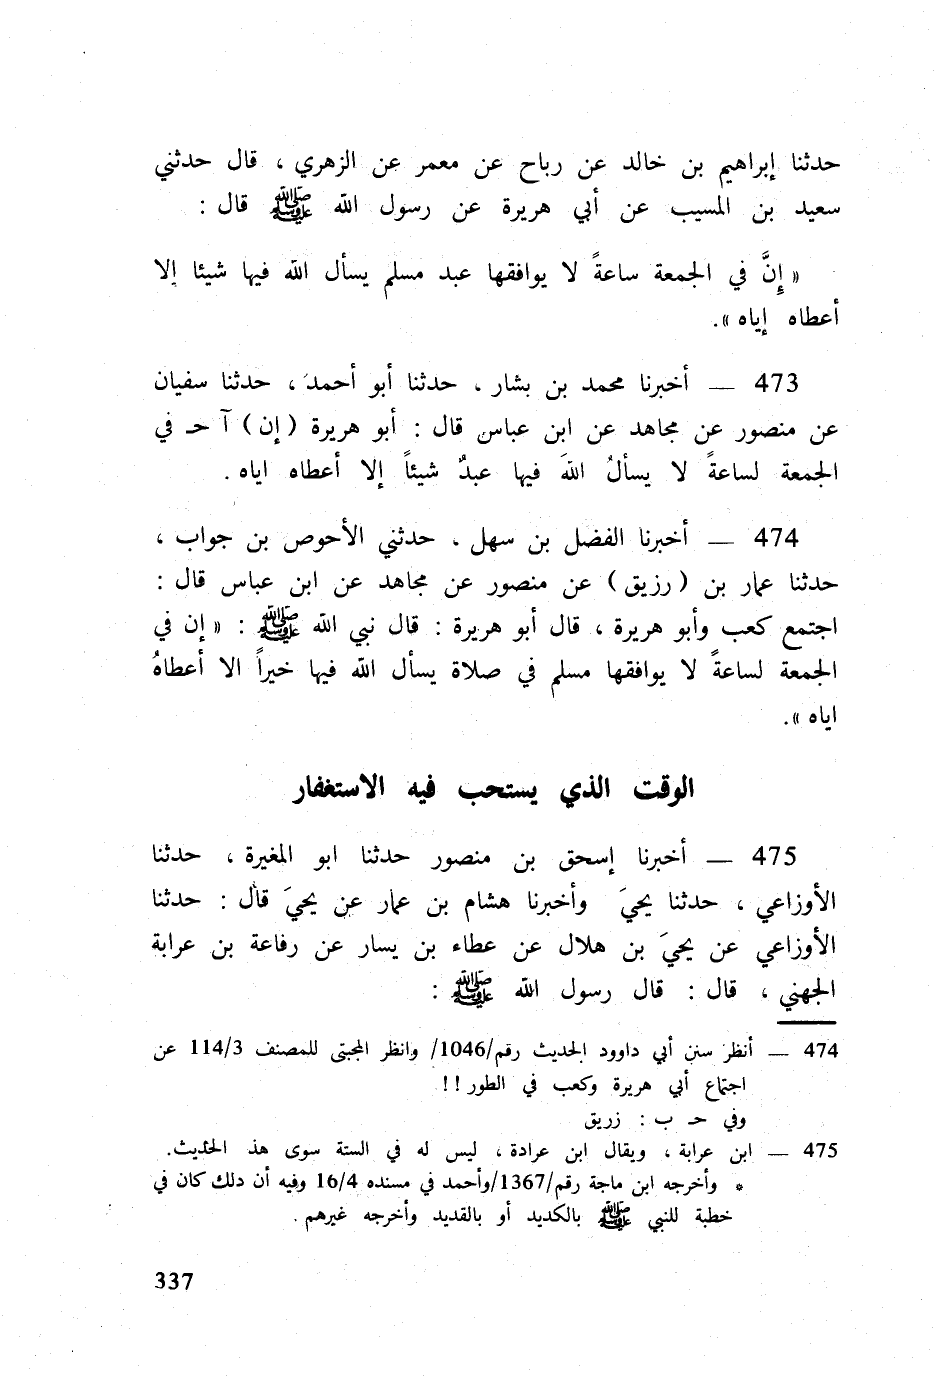 حدثنا إبراهيم بن خالد عن رباح عن معمر عن الزهري ، قال حدثني
سعيد بن المسيب عن أبي هريرة عن رسول الله ﷺ قال :
« إِنَّ في الجمعة ساعةً لا يوافقها عبد مسلم يسأل الله فيها شيئا إلا
أعطاه إياه ».
473 — أخبرنا محمد بن بشار ، حدثنا أبو أحمد ، حدثنا سفيان
عن منصور عن مجاهد عن ابن عباس قال : أبو هريرة ( إن ) آ حـ في
الجمعة لساعةً لا يسألُ اللهَ فيها عبدٌ شيئاً إلا أعطاه اياه .
474 — أخبرنا الفضل بن سهل . حدثني الأحوص بن جواب ،
حدثنا عمار بن ( رزيق ) عن منصور عن مجاهد عن ابن عباس قال :
اجتمع كعب وأبو هريرة ، قال أبو هريرة : قال نبي الله ﷺ : « إن في
الجمعة لساعةً لا يوافقها مسلم في صلاة يسأل الله فيها خيراً الا أعطاهُ
اياه ».
الوقت الذي يستحب فيه الاستغفار
475 — أخبرنا إسحق بن منصور حدثنا ابو المغيرة ، حدثنا
الأوزاعي ، حدثنا يحيَ وأخبرنا هشام بن عمار عن يحيَ قال : حدثنا
الأوزاعي عن يحيَ بن هلال عن عطاء بن يسار عن رفاعة بن عرابة
الجهني ، قال : قال رسول الله ﷺ :
474 — أنظر سنن أبي داوود الحديث رقم/1046/ وانظر المجتبى للمصنف 114/3 عن
اجتماع أبي هريرة وكعب في الطور ! !
وفي حـ ب : زريق
475 — ابن عرابة ، ويقال ابن عرادة ، ليس له في الستة سوى هذ الحديث.
* وأخرجه ابن ماجة رقم/1367/وأحمد في مسنده 16/4 وفيه أن ذلك كان في
خطبة للنبي ﷺ بالكديد أو بالقديد وأخرجه غيرهم .
337